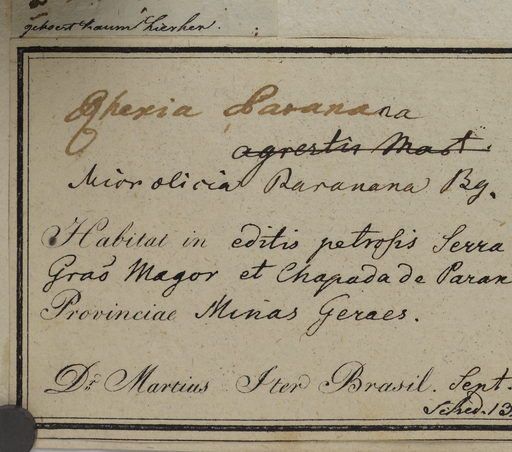 gehoert kaum hierher.
Rhexia Paranana
agrestis Mart.
Microlicia Paranana Bg.
Habitat in editis petrosis Serra
Graõ Magor et Chapada de Paran
Provinciae Minas Geraes.
Dr. Martius Iter Brasil. Sept.
Sched. 13